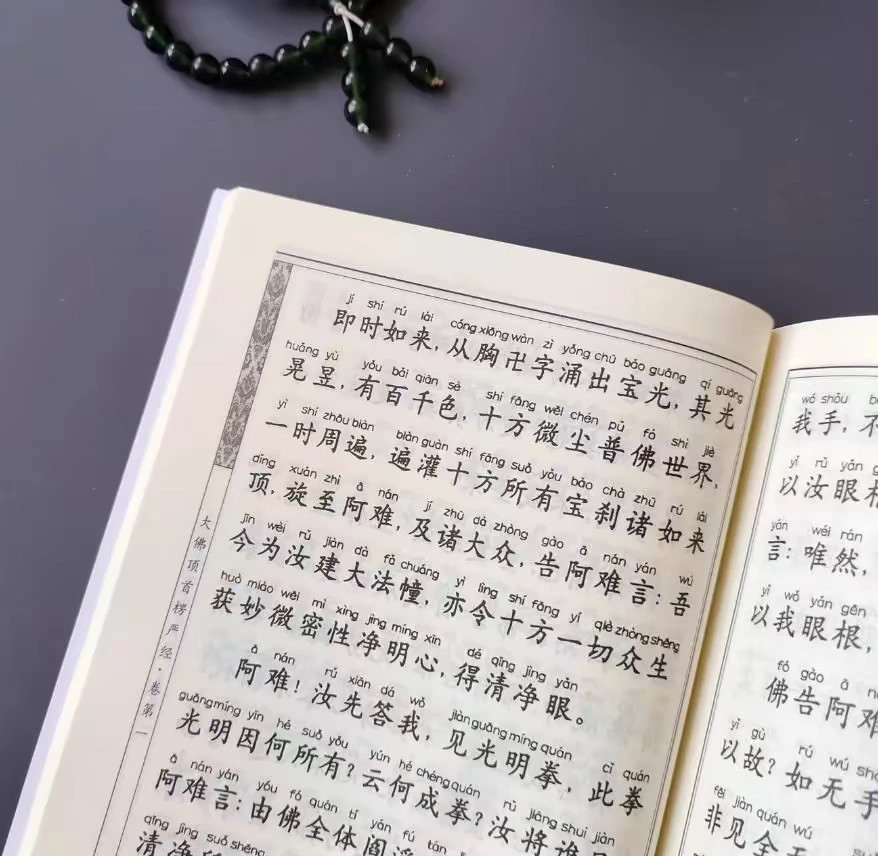 jí shí rú lái cóng xiōng wàn zì yǒng chū bǎo guāng qí guāng
即时如来，从胸卍字涌出宝光，其光
huǎng yù yǒu bǎi qiān sè shí fāng wēi chén pǔ fó shì jiè
晃昱，有百千色，十方微尘普佛世界，
yì shí zhōu biàn biàn guàn shí fāng suǒ yǒu bǎo chà zhū rú lái
一时周遍，遍灌十方所有宝刹诸如来
dǐng xuán zhì ā nán jí zhū dà zhòng gào ā nán yán wú
顶，旋至阿难，及诸大众，告阿难言：吾
jīn wèi rǔ jiàn dà fǎ chuáng yì lìng shí fāng yí qiè zhòng shēng
今为汝建大法幢，亦令十方一切众生
huò miào wēi mì xìng jìng míng xīn dé qīng jìng yǎn
获妙微密性净明心，得清净眼。
ā nán rǔ xiān dá wǒ jiàn guāng míng quán cǐ quán
阿难！汝先答我，见光明拳，此拳
guāng míng yīn hé suǒ yǒu yún hé chéng quán rǔ jiāng shuí jiàn
光明因何所有？云何成拳？汝将谁见
ā nán yán yóu fó quán tǐ yán fú tán
阿难言：由佛全体阎浮
qīng jìng suǒ shēng
清净所
大佛顶首楞严经·卷第一
wǒ shǒu
我手，不
yǐ rǔ yǎn
以汝眼根
yán wéi rán
言：唯然，
yǐ wǒ yǎn gēn
以我眼根，
fó gào ā
佛告阿难
yǐ gù rú wú shǒu
以故？如无手
fēi jiàn quán wú
非见全无